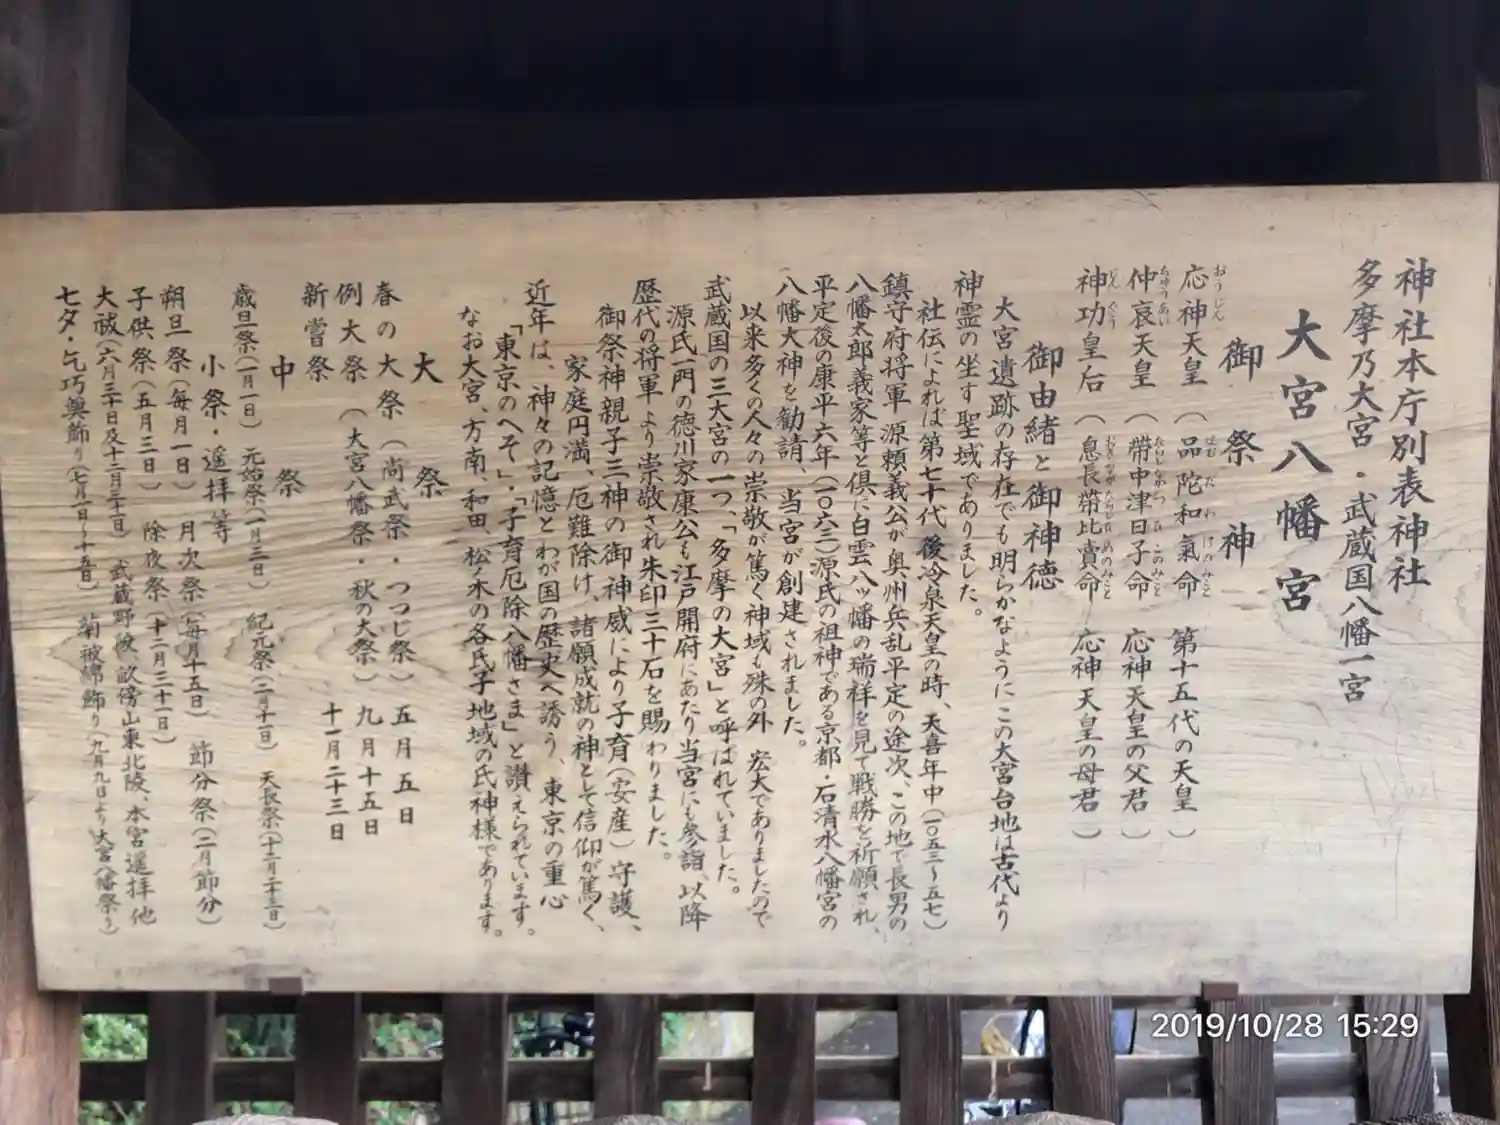 神社本庁別表神社
多摩乃大宮・武蔵国八幡一宮
大宮八幡宮
御祭神
応神天皇（品陀和氣命 第十五代の天皇）
おうじん ほむだわけのみこと
仲哀天皇（帶中津日子命 応神天皇の父君）
ちゅうあい たらしなかつひこのみこと
神功皇后（息長帶比賣命 応神天皇の母君）
じんぐう おきながたらしひめのみこと
御由緒と御神徳
大宮遺跡の存在でも明らかなようにこの大宮台地は古代より
神霊の坐す聖域でありました。
社伝によれば第七十代後冷泉天皇の時、天喜年中（一〇五三〜五七）
鎮守府将軍源頼義公が奥州兵乱平定の途次、この地で長男の
八幡太郎義家等と倶に白雲八ッ幡の瑞祥を見て戦勝を祈願され、
平定後の康平六年（一〇六三）源氏の祖神である京都・石清水八幡宮の
八幡大神を勧請、当宮が創建されました。
以来多くの人々の崇敬が篤く神域も殊の外 宏大でありましたので
武蔵国の三大宮の一つ、「多摩の大宮」と呼ばれていました。
源氏一門の徳川家康公も江戸開府にあたり当宮にも参詣、以降
歴代の将軍より崇敬され朱印三十石を賜わりました。
御祭神親子三神の御神威により子育（安産）守護、
家庭円満、厄難除け、諸願成就の神として信仰が篤く、
近年は、神々の記憶とわが国の歴史へ誘う、東京の重心
「東京のへそ」・「子育厄除八幡さま」と讃えられています。
なお大宮、方南、和田、松ノ木の各氏子地域の氏神様であります。
大祭
春の大祭（尚武祭・つつじ祭） 五月五日
例大祭（大宮八幡祭・秋の大祭） 九月十五日
新嘗祭 十一月二十三日
中祭
歳旦祭（一月一日） 元始祭（一月三日） 紀元祭（二月十一日） 天長祭（十二月二十三日）
小祭・遥拝等
朔旦祭（毎月一日） 月次祭（毎月十五日） 節分祭（二月節分）
子供祭（五月三日） 除夜祭（十二月三十一日）
大祓（六月三十日及十二月三十一日） 武蔵野陵、畝傍山東北陵、本宮遥拝他
七夕・乞巧奠飾り（七月一日〜十五日） 菊被綿飾り（九月九日より大宮八幡祭り）
2019/10/28 15:29